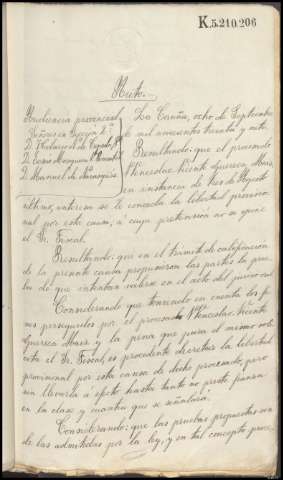 K.5.210.206
Auto.
Audiencia provincial
Señores Sección 2ª
D.
D.
D. Manuel de
La Coruña, ocho de Septiembre
de mil novecientos treinta y siete.
Resultando: que el procesado
Wenceslao Vicente
en instancia de tres de Agosto
último, interesa se le conceda la libertad provisio-
nal por esta causa; a cuya pretensión no se opone
el Sr. Fiscal.
Resultando: que en el trámite de calificación
de la presente causa propusieron las partes la prue-
ba de que intentan valerse en el acto del juicio oral.
Considerando que teniendo en cuenta los fi-
nes perseguidos por el procesado Wenceslao Vicente
y la pena que para el mismo soli-
cita el Sr. Fiscal, es procedente decretar la libertad
provisional por esta causa de dicho procesado, pero
sin llevarla a efecto hasta tanto no preste fianza
en la clase y cuantía que se señalará.
Considerando: que las pruebas propuestas son
de las admitidas por la ley, y en tal concepto proce-